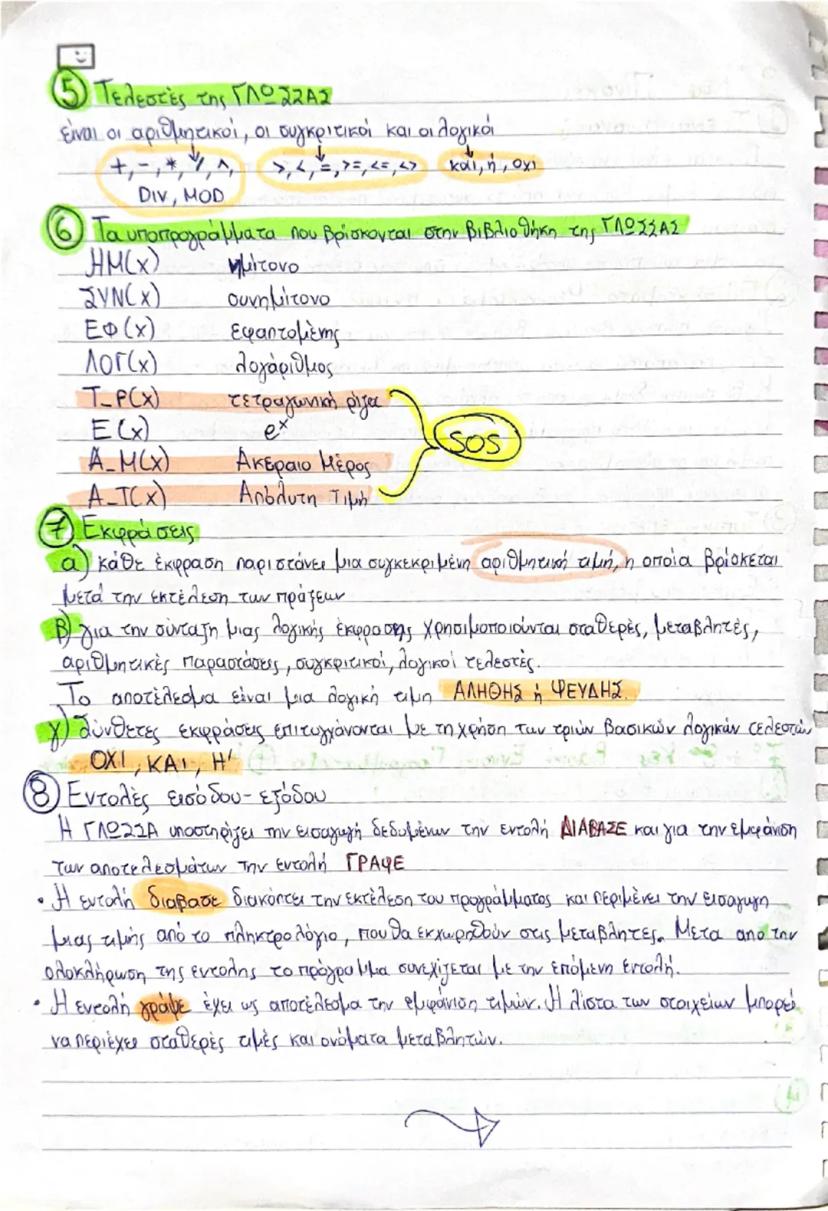 5 Τελεστές της ΓΛΩΣΣΑΣ
είναι οι αριθμητικοί, οι συγκριτικοί και οι λογικοί
+, -, *, /, ^, >, <, =, >=, <=, <> και, ή, οχι
DIV, MOD
6 Τα υποπρογράμματα που βρίσκονται στην βιβλιοθήκη της ΓΛΩΣΣΑΣ
ΗΜ(x) ημίτονο
ΣΥΝ(x) συνημίτονο
ΕΦ(x) εφαπτομένης
ΛΟΓ(x) λογάριθμος
Τ_Ρ(x) τετραγωνική ρίζα
Ε(x) eˣ SOS
Α_Μ(x) Ακέραιο Μέρος
Α_Τ(x) Απόλυτη Τιμή
7 Εκφράσεις
α) κάθε έκφραση παριστάνει μια συγκεκριμένη αριθμητική τιμή, η οποία βρίσκεται
μετά την εκτέλεση των πράξεων
β) για την σύνταξη μιας λογικής έκφρασης χρησιμοποιούνται σταθερές, μεταβλητές,
αριθμητικές παραστάσεις, συγκριτικοί, λογικοί τελεστές.
Το αποτέλεσμα είναι μια λογική τιμη ΑΛΗΘΗΣ ή ΨΕΥΔΗΣ.
γ) Σύνθετες εκφράσεις επιτυγχάνονται με τη χρήση των τριών βασικών λογικών τελεστών
ΟΧΙ, ΚΑΙ, Η'
8 Εντολές εισόδου-εξόδου
Η ΓΛΩΣΣΑ υποστηρίζει την εισαγωγή δεδομένων την εντολή ΔΙΑΒΑΣΕ και για την εμφάνιση
των αποτελεσμάτων την εντολή ΓΡΑΨΕ
• Η εντολή διαβασε διακόπτει την εκτέλεση του προγράμματος και περιμένει την εισαγωγη
μιας τιμής από το πληκτρολόγιο, που θα εκχωρηθούν στις μεταβλητες. Μετα από την
ολοκλήρωση της εντολης το πρόγραμμα συνεχίζεται με την επόμενη εντολή.
• Η εντολή γράψε έχει ως αποτέλεσμα την εμφάνιση τιμών. Η λίστα των στοιχείων μπορεί
να περιέχει σταθερές τιμές και ονόματα μεταβλητών.